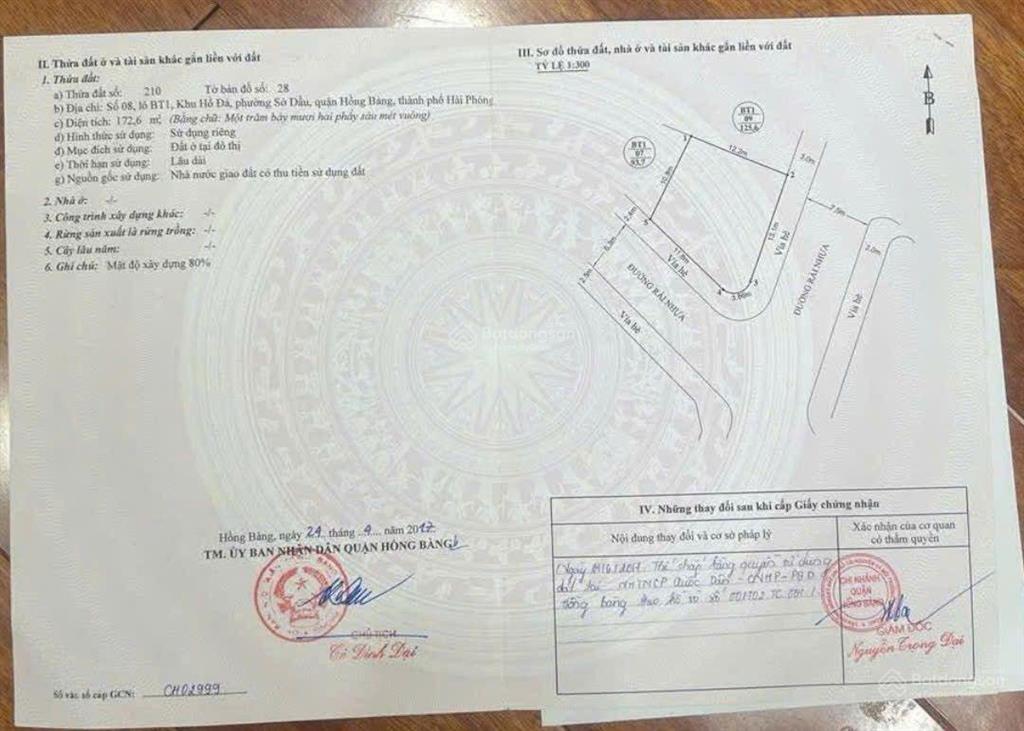 II. Thửa đất ở và tài sản khác gắn liền với đất
1. Thửa đất:
a) Thửa đất số: 210 Tờ bản đồ số: 28
b) Địa chỉ: Số 08, lô BT1, Khu Hồ Đá, phường Sở Dầu, quận Hồng Bàng, thành phố Hải Phòng
c) Diện tích: 172,6 m², (Bằng chữ: Một trăm bảy mươi hai phẩy sáu mét vuông)
d) Hình thức sử dụng: Sử dụng riêng
đ) Mục đích sử dụng: Đất ở tại đô thị
e) Thời hạn sử dụng: Lâu dài
g) Nguồn gốc sử dụng: Nhà nước giao đất có thu tiền sử dụng đất
2. Nhà ở: -/-
3. Công trình xây dựng khác: -/-
4. Rừng sản xuất là rừng trồng: -/-
5. Cây lâu năm: -/-
6. Ghi chú: Mật độ xây dựng 80%
Hồng Bàng, ngày 24 tháng 4 năm 2017
TM. ỦY BAN NHÂN DÂN QUẬN HỒNG BÀNG
CHỦ TỊCH
Số vào sổ cấp GCN: CH02999
III. Sơ đồ thửa đất, nhà ở và tài sản khác gắn liền với đất
TỶ LỆ 1:300
B
BT1
09
125,6
BT1
07
93,7
1
12,2m
2
3,0m
10,8m
7,5m
5
2,4m
13,1m
2,0m
11,8m
Vỉa hè
Vỉa hè
6,3m
4
3
3,00m
2,5m
ĐƯỜNG RẢI NHỰA
ĐƯỜNG RẢI NHỰA
Vỉa hè
Vỉa hè
Batdongsan
IV. Những thay đổi sau khi cấp Giấy chứng nhận
Nội dung thay đổi và cơ sở pháp lý
Xác nhận của cơ quan
có thẩm quyền
Thế chấp bằng quyền sử dụng
đất tại NHTMCP Quốc Dân
Hồng Bàng theo hồ sơ số 001702.TC.001
CHI NHÁNH
QUẬN
HỒNG BÀNG
GIÁM ĐỐC
Nguyễn Trọng Đại
Batdongsan